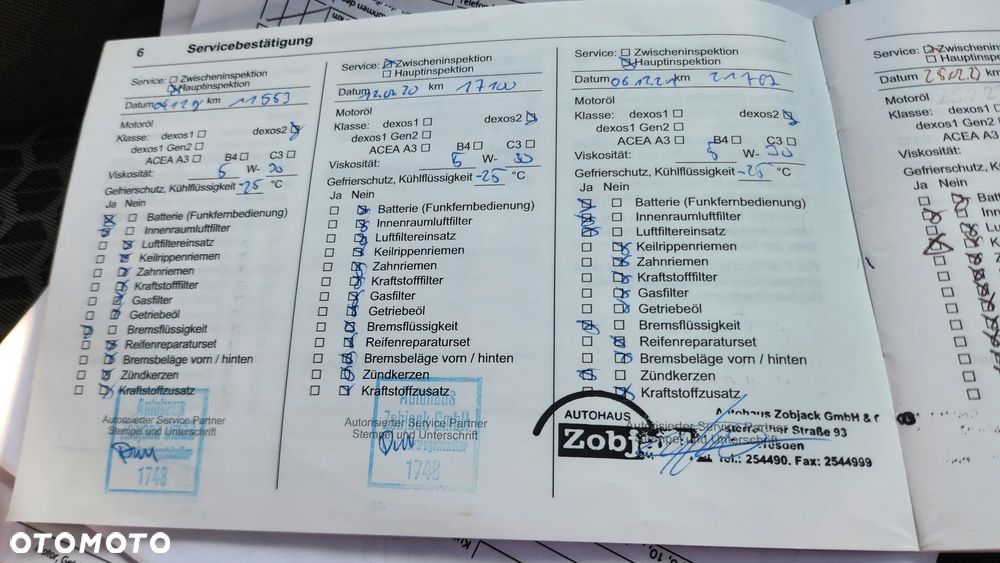 6 Servicebestätigung
Service: Zwischeninspektion
Hauptinspektion
Datum km 11553
Motoröl
Klasse: dexos1 dexos2
dexos1 Gen2
ACEA A3 B4 C3
Viskosität: 5 W- 30
Gefrierschutz, Kühlflüssigkeit -25 °C
Ja Nein
Batterie (Funkfernbedienung)
Innenraumluftfilter
Luftfiltereinsatz
Keilrippenriemen
Zahnriemen
Kraftstofffilter
Gasfilter
Getriebeöl
Bremsflüssigkeit
Reifenreparaturset
Bremsbeläge vorn / hinten
Zündkerzen
Kraftstoffzusatz
Autorisierter Service Partner
Stempel und Unterschrift
Autohaus
1748
Service: Zwischeninspektion
Hauptinspektion
Datum 12.02.20 km 17100
Motoröl
Klasse: dexos1 dexos2
dexos1 Gen2
ACEA A3 B4 C3
Viskosität: 5 W- 30
Gefrierschutz, Kühlflüssigkeit -25 °C
Ja Nein
Batterie (Funkfernbedienung)
Innenraumluftfilter
Luftfiltereinsatz
Keilrippenriemen
Zahnriemen
Kraftstofffilter
Gasfilter
Getriebeöl
Bremsflüssigkeit
Reifenreparaturset
Bremsbeläge vorn / hinten
Zündkerzen
Kraftstoffzusatz
Autorisierter Service Partner
Stempel und Unterschrift
Autohaus
Zobjack GmbH
1748
Service: Zwischeninspektion
Hauptinspektion
Datum 06.12.21 km 21702
Motoröl
Klasse: dexos1 dexos2
dexos1 Gen2
ACEA A3 B4 C3
Viskosität: 5 W- 30
Gefrierschutz, Kühlflüssigkeit -25 °C
Ja Nein
Batterie (Funkfernbedienung)
Innenraumluftfilter
Luftfiltereinsatz
Keilrippenriemen
Zahnriemen
Kraftstofffilter
Gasfilter
Getriebeöl
Bremsflüssigkeit
Reifenreparaturset
Bremsbeläge vorn / hinten
Zündkerzen
Kraftstoffzusatz
Autorisierter Service Partner
Stempel und Unterschrift
AUTOHAUS
Zobj
Autohaus Zobjack GmbH &
Straße 93
Tel.: 254490. Fax: 2544999
Servicebes
Service: Zwischenin
Hauptinsp
Datum km
Motoröl
Klasse: dexos1
dexos1 Gen2
ACEA A3
Viskosität:
Gefrierschutz, Kühl
Ja Nein
Batt
Inn
Lu
K
OTOMOTO